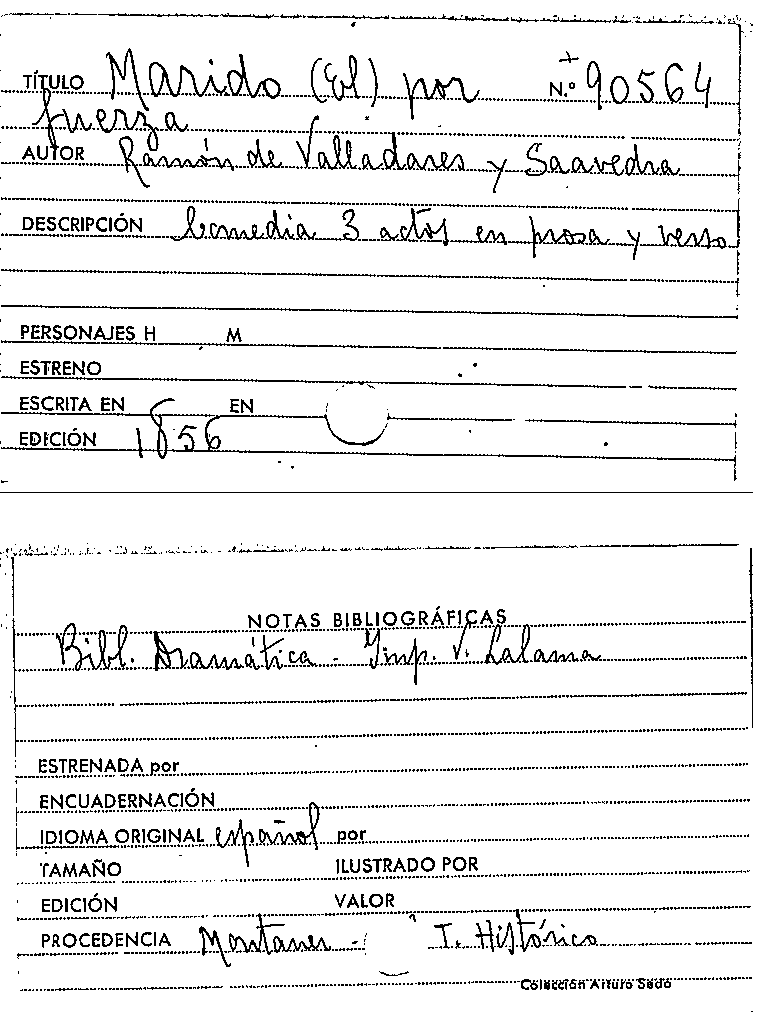 TÍTULO Marido (El) por N.º 90564
fuerza
AUTOR Ramón de Valladares y Saavedra
DESCRIPCIÓN Comedia 3 actos en prosa y verso
PERSONAJES H M
ESTRENO
ESCRITA EN EN
EDICIÓN 1856
NOTAS BIBLIOGRÁFICAS
Bibl. Dramática - Imp. V. Lalama
ESTRENADA por
ENCUADERNACIÓN
IDIOMA ORIGINAL español por
TAMAÑO ILUSTRADO POR
EDICIÓN VALOR
PROCEDENCIA Montaner - T. Histórico
Colección Arturo Sedó